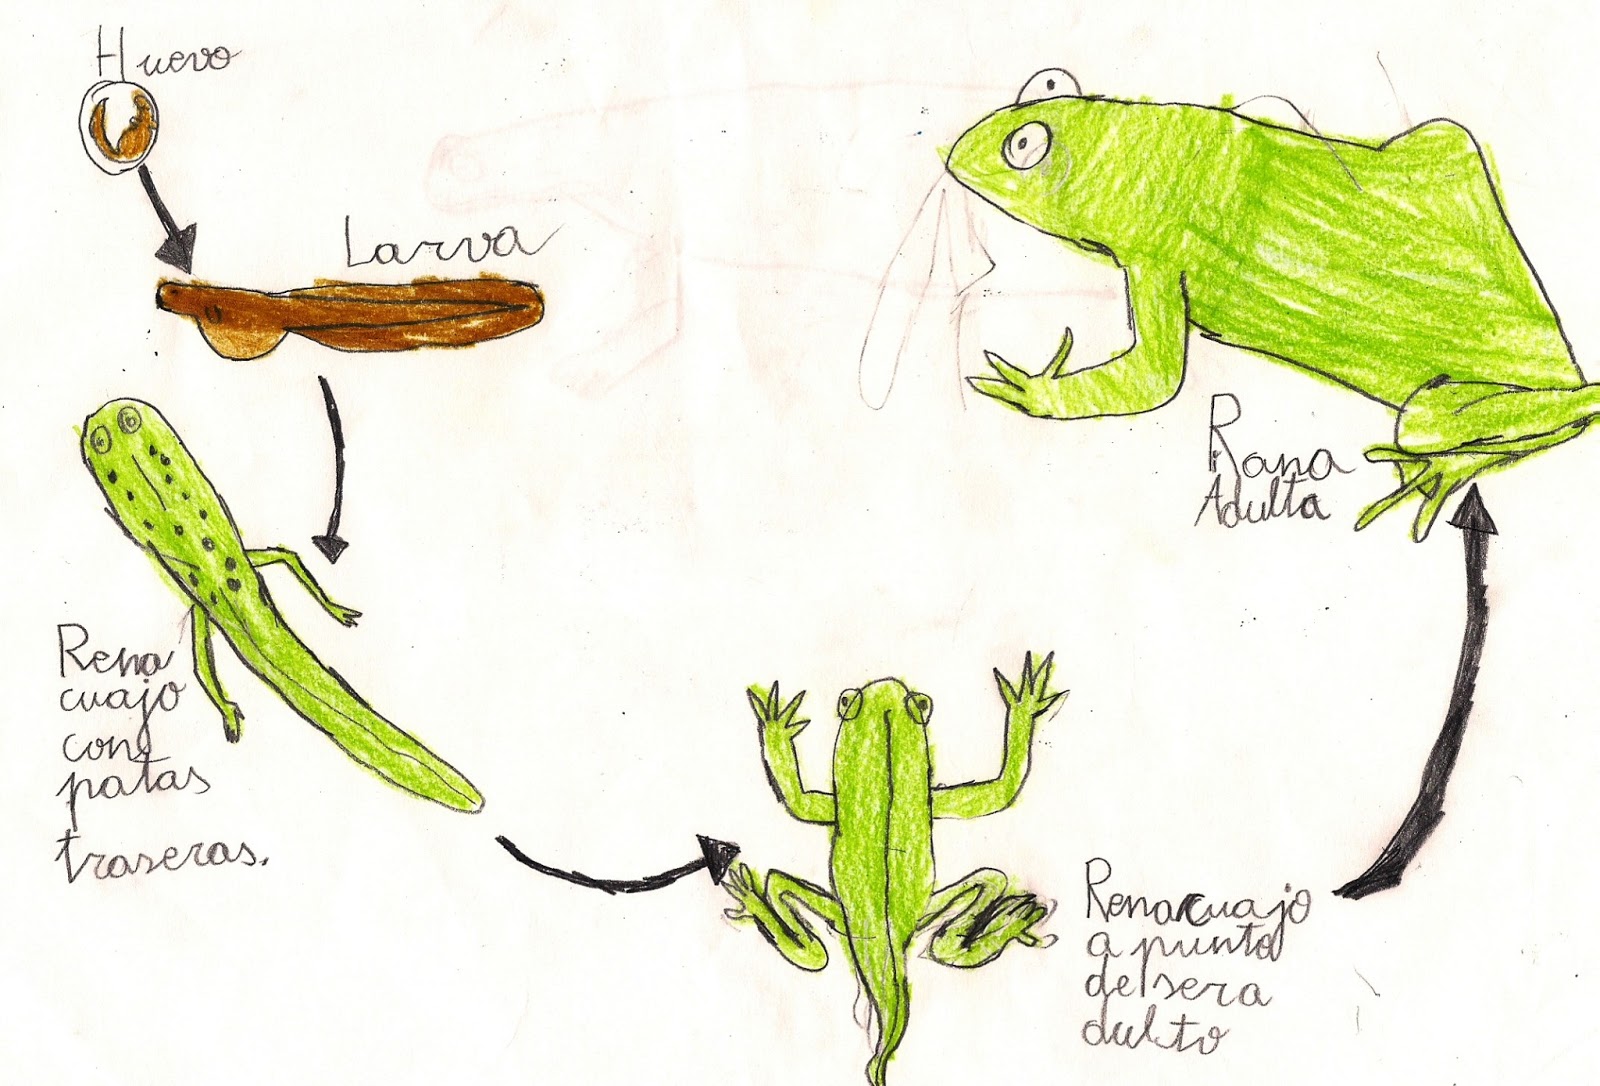 Huevo
Larva
Rena
cuajo
con
patas
traseras.
Renacuajo
a punto
de sera
dulto
Rana
Adulta